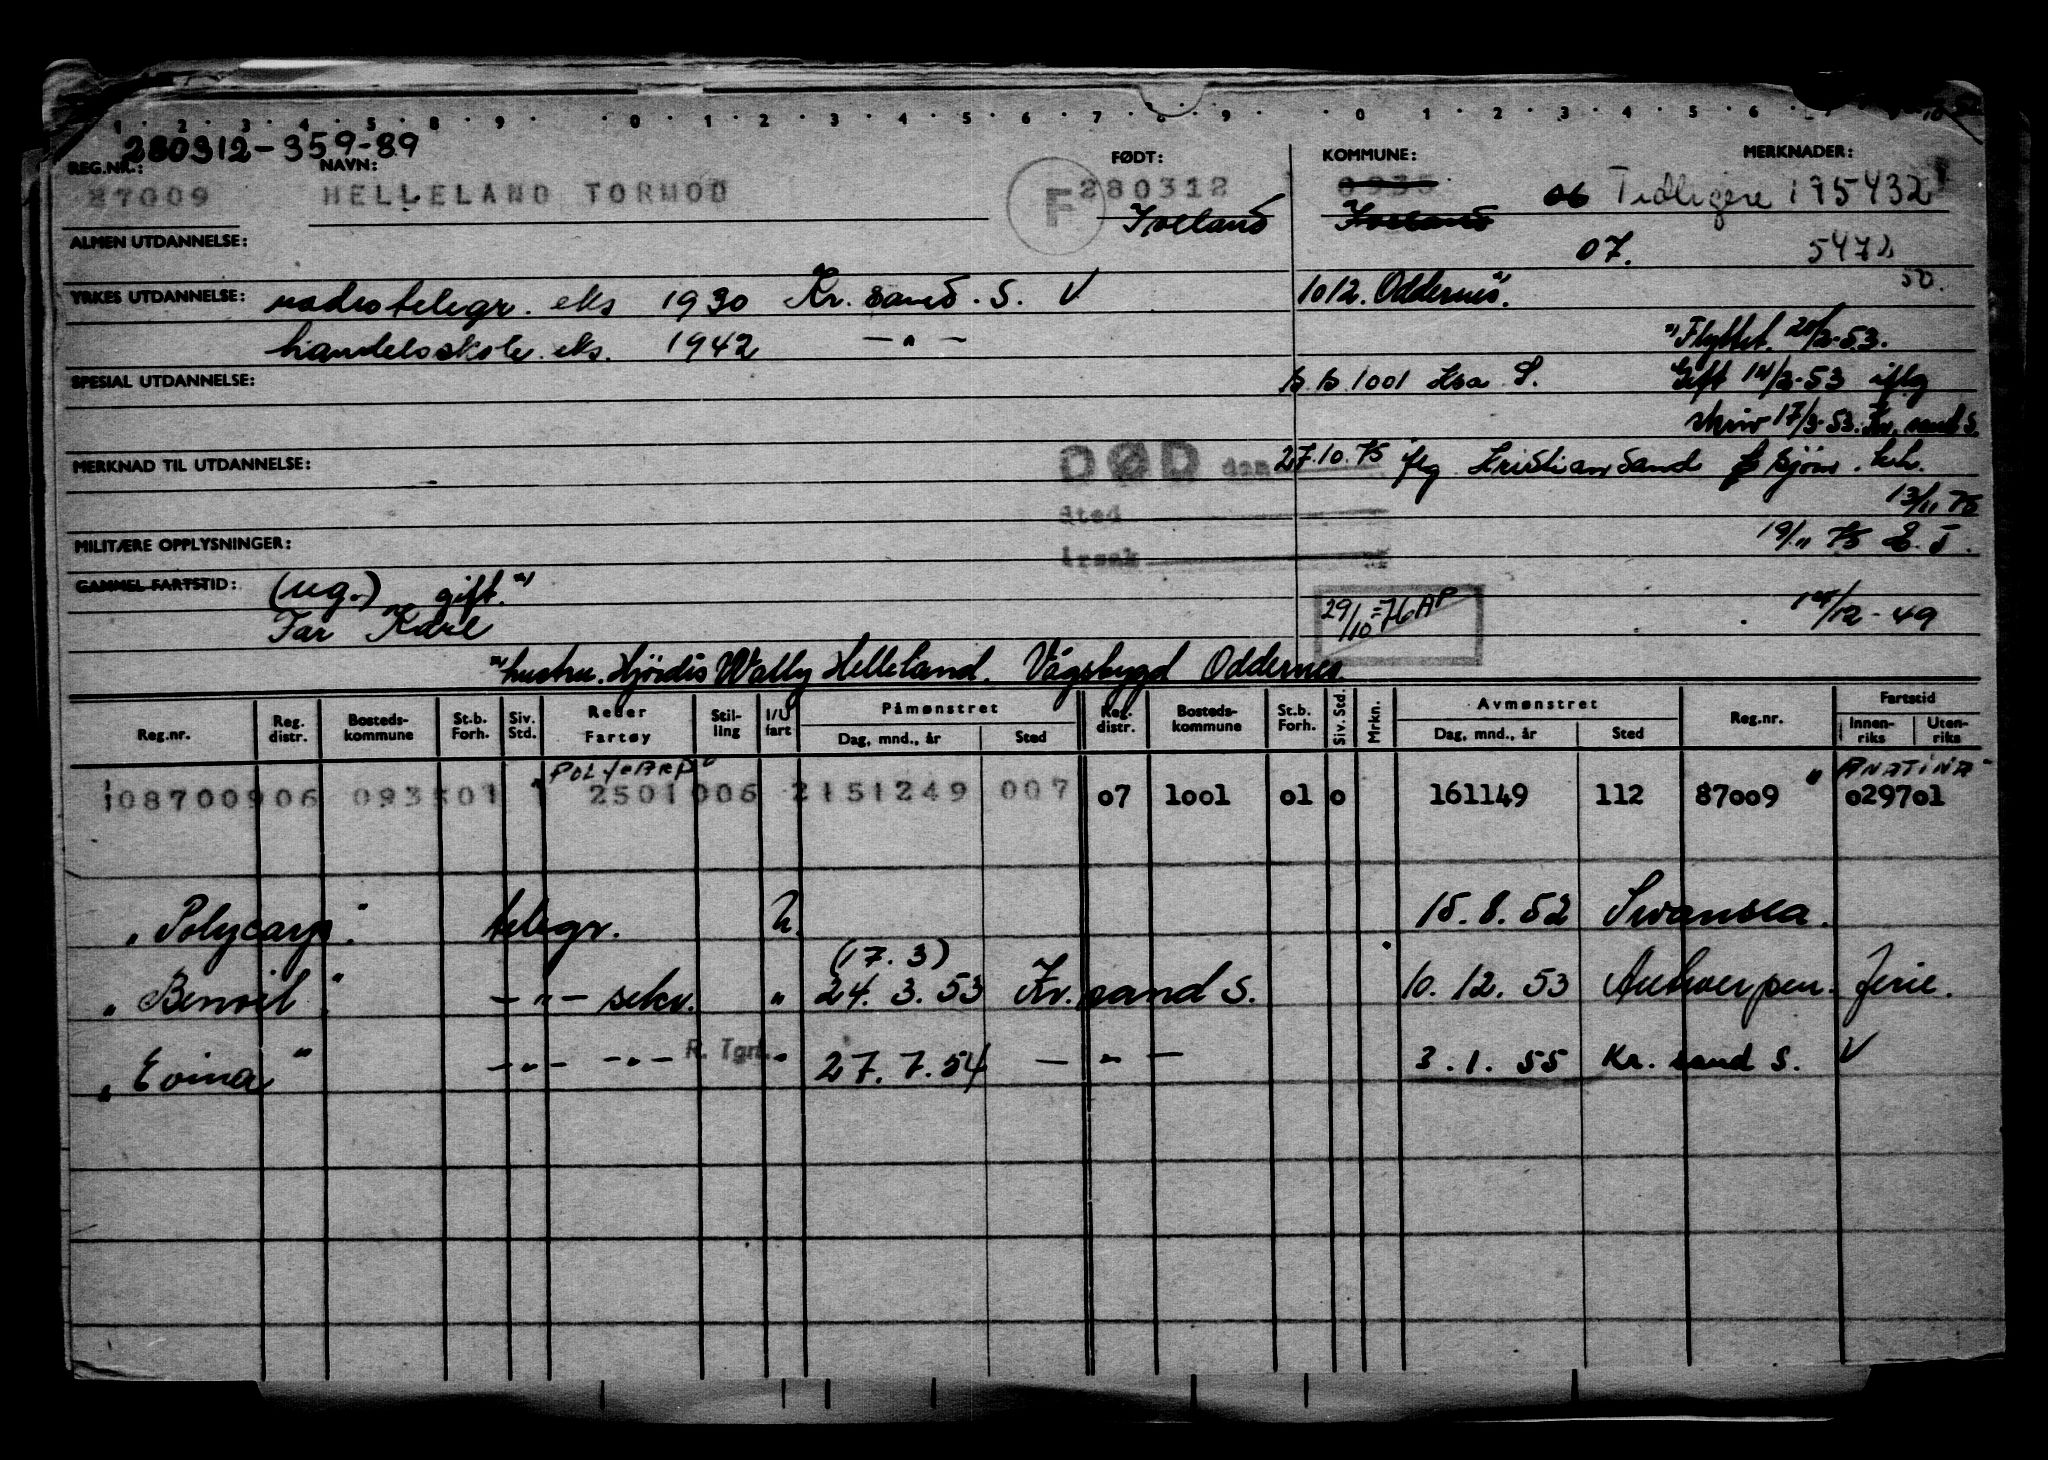 1 · 2 · 3 · 4 · 5 · 8 · 9 · 0 · 1 · 2 · 3 · 4 · 5 · 6 · 7 · 8 · 9 · 0 · 1 · 2 · 3 · 4 · 5 · 6
280312-359-89
REG.NR.: NAVN: FØDT: KOMMUNE: MERKNADER:
87009 HELLELAND TORMOD F 280312 0935 06 Tidligere 175432
Iveland Iveland 07. 5472
ALMEN UTDANNELSE: 50.
YRKES UTDANNELSE: radiotelegr. eks 1930 Kr. sand. S. V 1012. Oddernes".
handelsskole eks. 1942 - " - "Flyttet. 20/2-53.
SPESIAL UTDANNELSE: 1001 Kra S. Gift 14/2-53 iflg
skriv 17/3-53. Kr. sand S.
MERKNAD TIL UTDANNELSE: DØD den 27.10.75 flg Kristiansand sjøm. krk.
sted 13/11 75
MILITÆRE OPPLYSNINGER: 19/11 75 E. T.
årsak
GAMMEL FARTSTID: (ug.) gift."
Far Karl 29/10-76 AP 14/12-49
"hustru. Hjørdis Wally Helleland. Vågsbygd Oddernes.
Reg.nr. Reg. distr. Bosteds-kommune St.b. Forh. Siv. Std. Reder Fartøy Stil-ling I/U fart Påmønstret Dag, mnd., år Sted Reg. distr. Bosteds-kommune St.b. Forh. Siv. Std. Mrkn. Avmønstret Dag, mnd., år Sted Reg.nr. Fartstid Innen-riks Uten-riks
"POLYCARP" "ANATINA"
108700906 093501 1 2501006 2151249 007 07 1001 01 0 161149 112 87009 029701
"Polycarp" telegr. U. 15.8.52 Swansea.
(17.3)
"Benvil" - " - sekr. " 24.3.53 Kr. sand S. 10.12.53 Antwerpen. ferie.
"Evina" - " - - " - R. Tgr. " 27.7.54 - " - 3.1.55 Kr. sand S. V